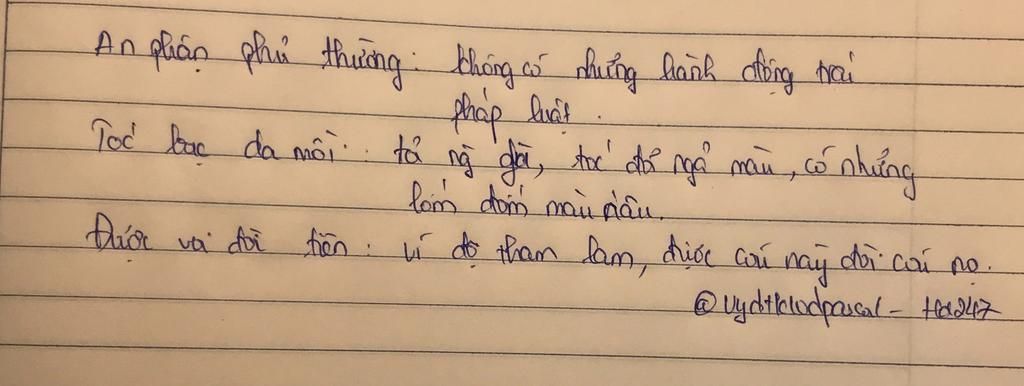 An phận phủ thường: không có những hành động trái
pháp luật.
Tóc bạc da mồi: tả ng già, tóc đã ngả màu, có những
lốm đốm màu nâu.
Được voi đòi tiên: ví độ tham lam, được cái này đòi cái nọ.